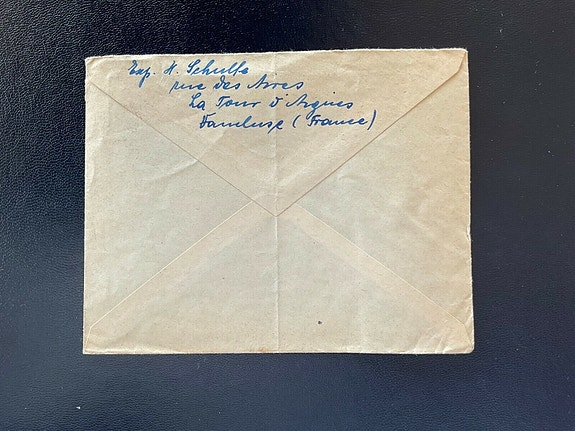 Exp. H. Schulte
rue des Aires
La Tour d'Aigues
Vaucluse (France)